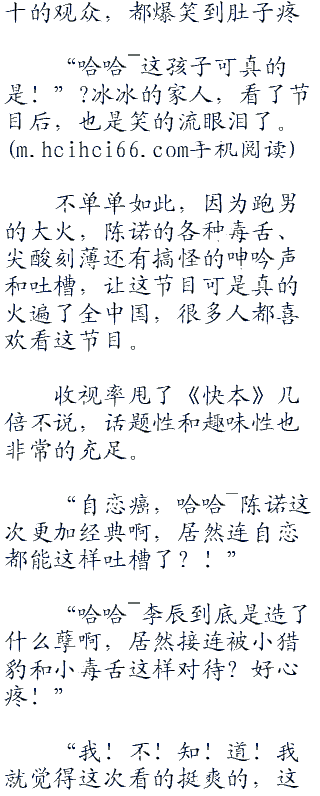 十的观众，都爆笑到肚子疼
“哈哈¯这孩子可真的
是！”?冰冰的家人，看了节
目后，也是笑的流眼泪了。
(m.hcihci66.com手机阅读)
不单单如此，因为跑男
的大火，陈诺的各种毒舌、
尖酸刻薄还有搞怪的呻吟声
和吐槽，让这节目可是真的
火遍了全中国，很多人都喜
欢看这节目。
收视率甩了《快本》几
倍不说，话题性和趣味性也
非常的充足。
“自恋癌，哈哈¯陈诺这
次更加经典啊，居然连自恋
都能这样吐槽了？！”
“哈哈¯李辰到底是造了
什么孽啊，居然接连被小猎
豹和小毒舌这样对待？好心
疼！”
“我！不！知！道！我
就觉得这次看的挺爽的，这